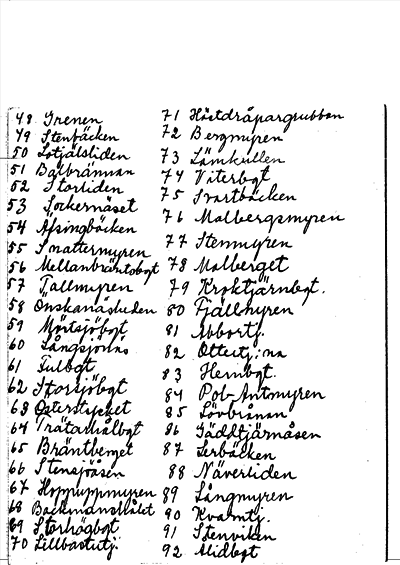 48 Grenen
49 Stenbäcken
50 Lotjälsliden
51 Balbrännan
52 Storliden
53 Sockernäset
54 Afsingbäcken
55 Snattermyren
56 Mellanbräntebgt
57 Tallmyren
58 Önskanäsluden
59 Mörtsjöbgt
60 Långsjönäs
61 Fulbgt
62 Storsjöbgt
63 Österstycket
64 Trätarhålbgt
65 Bräntberget
66 Stensjöåsen
67 Hoppuppmyren
68 Backmanshålet
69 Storhögbgt
70 Lillbastutj.
71 Hästdråpargrubban
72 Bergmyren
73 Lämkullen
74 Viterbgt
75 Svartbäcken
76 Malbergsmyren
77 Stenmyren
78 Malberget
79 Kroktjärnbgt.
80 Fjällmyren
81 Abbortj.
82 Ottertj:na
83 Hembgt.
84 Pol-Antomyren
85 Lövbrånan
86 Gäddtjärnåsen
87 Lerbäcken
88 Näverliden
89 Långmyren
90 Kvarntj.
91 Stenviken
92 Alidbgt